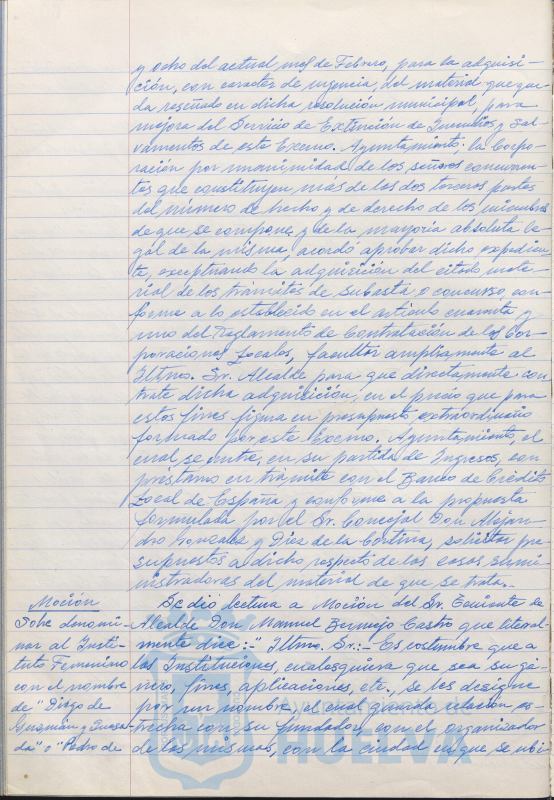 y ocho del actual mes de Febrero, para la adquisi-
ción, con caracter de urgencia, del material que que-
da reseñado en dicha resolución municipal, para
mejora del Servicio de Extinción de Incendios y Sal-
vamentos de este Excmo. Ayuntamiento; la Corpo-
ración por unanimidad de los señores concurren-
tes que constituyen más de los dos terceras partes
del número de hecho y de derecho de los miembros
de que se compone y de la mayoria absoluta le-
gal de la misma, acordó aprobar dicho expedien-
te, exceptuando la adquisición del citado mate-
rial de los trámites de subasta o concurso, con-
forme a lo establecido en el artículo cuarenta y
uno del Reglamento de Contratación de las Cor-
poraciones Locales, facultar ampliamente al
Iltmo. Sr. Alcalde para que directamente con-
trate dicha adquisición, en el precio que para
estos fines figura en presupuesto extraordinario
formado por este Excmo. Ayuntamiento, el
cual se nutre, en su partida de Ingresos, con
préstamo en trámite con el Banco de Crédito
Local de España y conforme a la propuesta
formulada por el Sr. Concejal Don Alejan-
dro Gonzalez y Diez de la Cortina, solicitar pre-
supuestos a dicho respecto de las casas sumi-
nistradoras del material de que se trata.
Moción
Sobre denomi-
nar al Insti-
tuto Femenino
con el nombre
de "Diego de
Guzmán y Quesa-
da" o "Pedro de
Se dió lectura a Moción del Sr. Teniente de
Alcalde Don Manuel Bermejo Castro que literal-
mente dice:-" Iltmo. Sr.:- Es costumbre que a
las Instituciones, cualesquiera que sea su gé-
nero, fines, aplicaciones, etc., se les designe
por un nombre, el cual guarda relación es-
trecha con su fundador, con el organizador
de las mismas, con la ciudad en que se ubi-
HUELVA